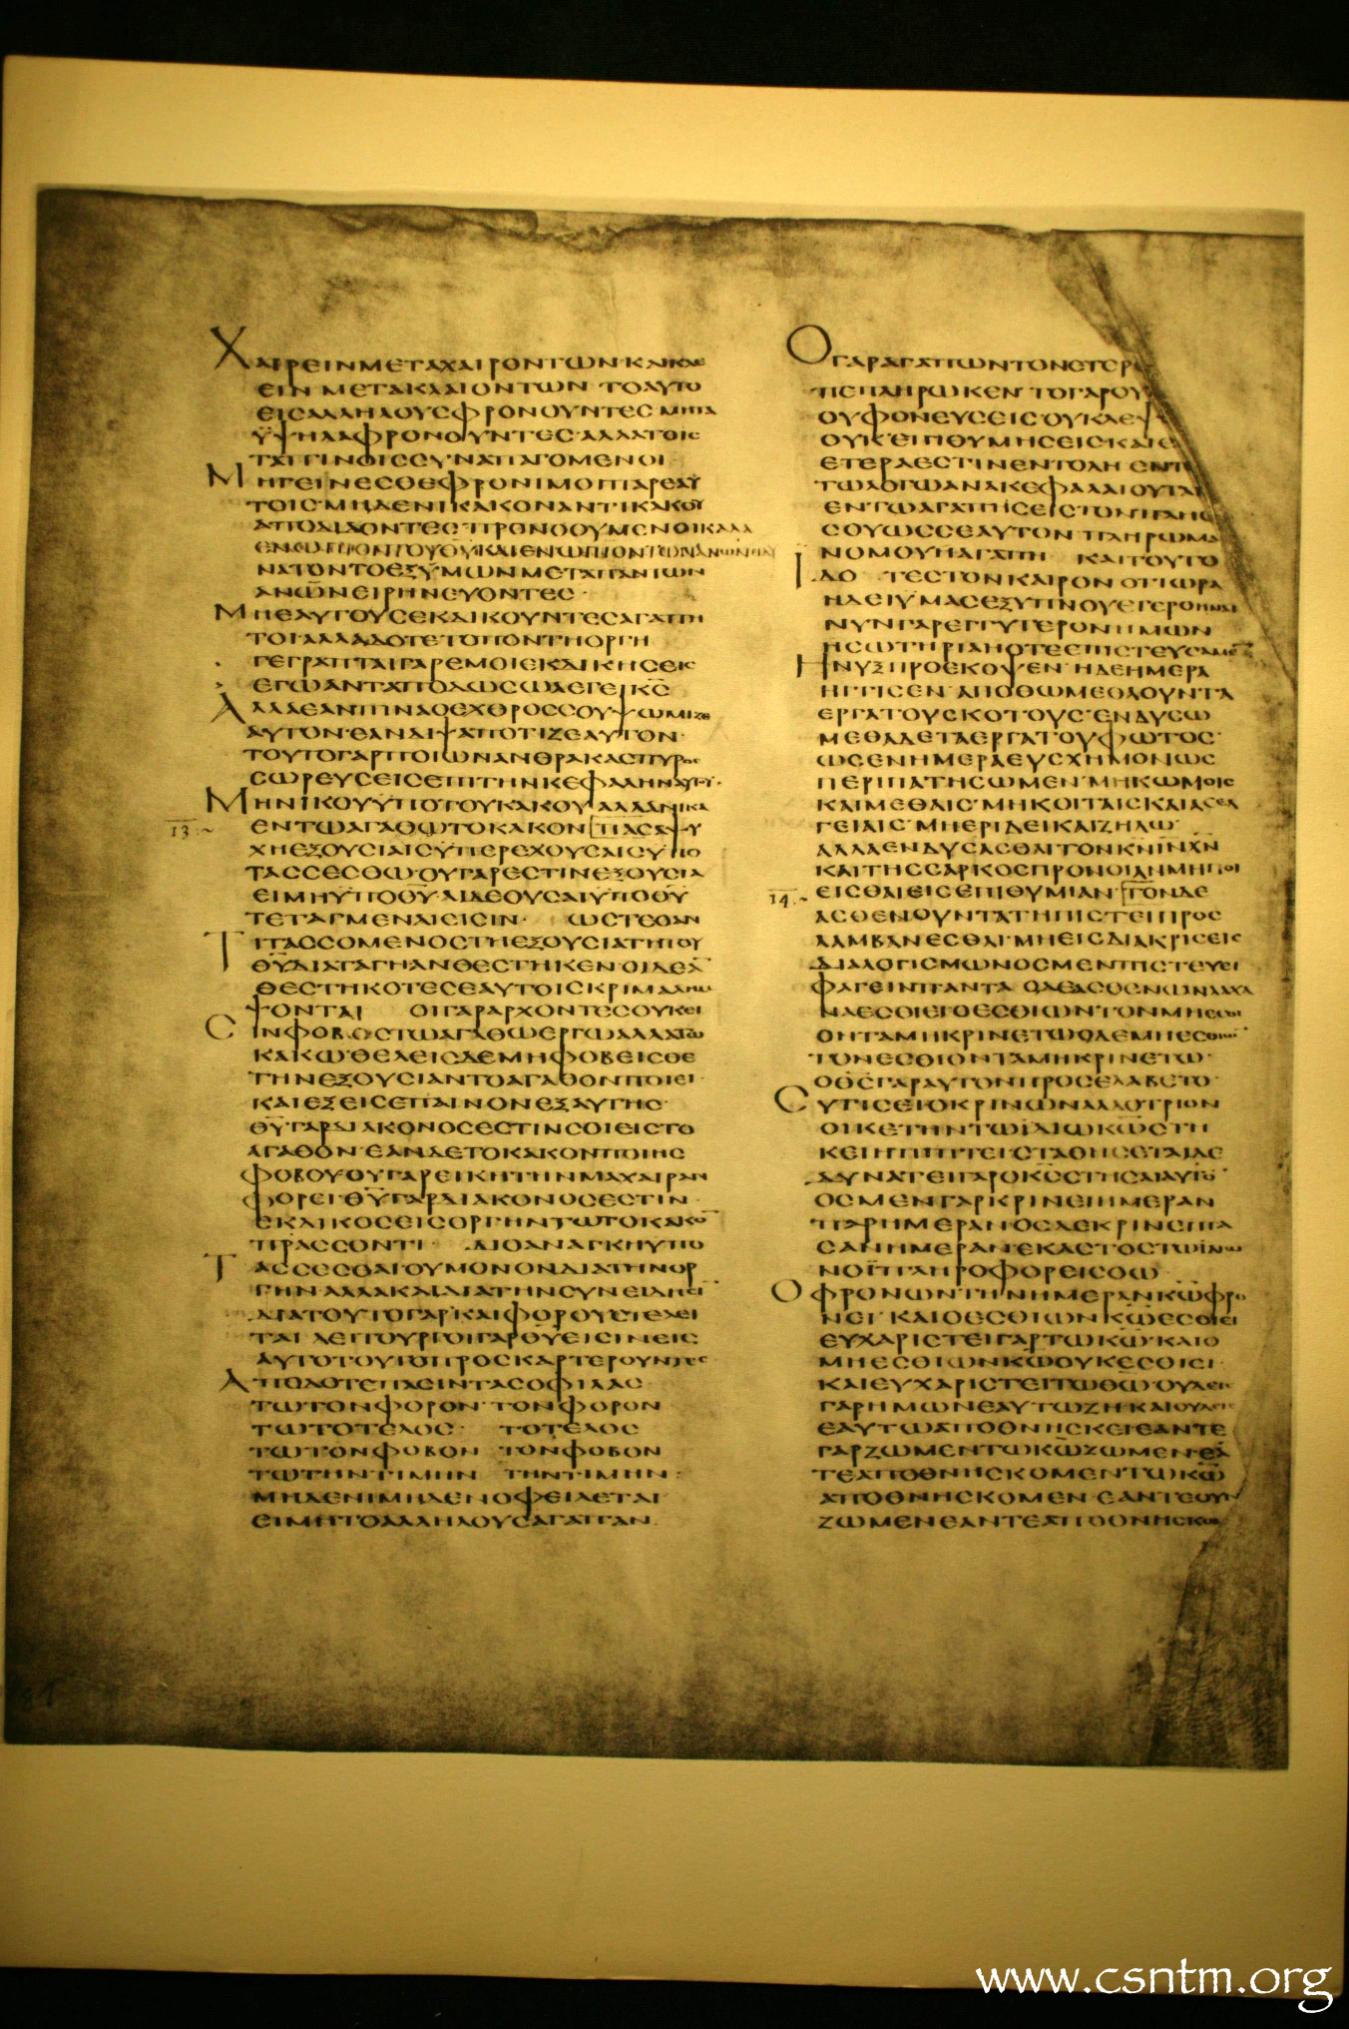 ΧΑΙΡΕΙΝΜΕΤΑΧΑΙΡΟΝΤΩΝΚΑΙΚΛΑΙ
ΕΙΝ ΜΕΤΑΚΛΑΙΟΝΤΩΝ ΤΟΑΥΤΟ
ΕΙΣΑΛΛΗΛΟΥΣΦΡΟΝΟΥΝΤΕΣ ΜΗΤΑ
ΫΨΗΛΑΦΡΟΝΟΥΝΤΕΣ·ΑΛΛΑΤΟΙΣ
ΤΑΠΙΝΟΙΣΣΥΝΑΠΑΓΟΜΕΝΟΙ
ΜΗΓΕΙΝΕΣΘΕΦΡΟΝΙΜΟΙΠΑΡΕΑΥ
ΤΟΙΣ·ΜΗΔΕΝΙΚΑΚΟΝΑΝΤΙΚΑΚΟΥ
ΑΠΟΔΙΔΟΝΤΕΣ·ΠΡΟΝΟΟΥΜΕΝΟΙΚΑΛΑ
ΕΝΩΠΙΟΝΤΟΥΘΥΚΑΙΕΝΩΠΙΟΝΤΩΝΑΝΩΝ
ΝΑΤΟΝΤΟΕΞΫΜΩΝΜΕΤΑΠΑΝΤΩΝ
ΑΝΩΝΕΙΡΗΝΕΥΟΝΤΕΣ·
ΜΗΕΑΥΤΟΥΣΕΚΔΙΚΟΥΝΤΕΣΑΓΑΠΗ
ΤΟΙ·ΑΛΛΑΔΟΤΕΤΟΠΟΝΤΗΟΡΓΗ
ΓΕΓΡΑΠΤΑΙΓΑΡΕΜΟΙΕΚΔΙΚΗΣΕΚ
ΕΓΩΑΝΤΑΠΟΔΩΣΩΛΕΓΕΙΚΣ
ΑΛΛΑΕΑΝΠΙΝΑΟΕΧΘΡΟΣΣΟΥΨΩΜΙΖΕ
ΑΥΤΟΝ·ΕΑΝΔΙΨΑΠΟΤΙΖΕΑΥΤΟΝ·
ΤΟΥΤΟΓΑΡΠΟΙΩΝΑΝΘΡΑΚΑΣΠΥΡΟΣ
ΣΩΡΕΥΣΕΙΣΕΠΙΤΗΝΚΕΦΑΛΗΝΑΥΤΟΥ·
ΜΗΝΙΚΟΥΫΠΟΤΟΥΚΑΚΟΥΑΛΛΑΝΙΚΑ
13 ΕΝΤΩΑΓΑΘΩΤΟΚΑΚΟΝ ΠΑΣΑΨΥ
ΧΗΕΞΟΥΣΙΑΙΣΫΠΕΡΕΧΟΥΣΑΙΣΫΠΟ
ΤΑΣΣΕΣΘΩ·ΟΥΓΑΡΕΣΤΙΝΕΞΟΥΣΙΑ
ΕΙΜΗΫΠΟΘΥ·ΑΙΔΕΟΥΣΑΙΥΠΟΘΥ
ΤΕΤΑΓΜΕΝΑΙΕΙΣΙΝ· ΩΣΤΕΟΑΝ
ΤΙΤΑΣΣΟΜΕΝΟΣΤΗΕΞΟΥΣΙΑΤΗΤΟΥ
ΘΥΔΙΑΤΑΓΗΑΝΘΕΣΤΗΚΕΝ·ΟΙΔΕΑ
ΘΕΣΤΗΚΟΤΕΣΕΑΥΤΟΙΣΚΡΙΜΑΛΗΜ
ΨΟΝΤΑΙ ΟΙΓΑΡΑΡΧΟΝΤΕΣΟΥΚΕΙ
ΣΙΝΦΟΒΟΣΤΩΑΓΑΘΩΕΡΓΩΑΛΛΑΤΩ
ΚΑΚΩ·ΘΕΛΕΙΣΔΕΜΗΦΟΒΕΙΣΘΕ
ΤΗΝΕΞΟΥΣΙΑΝΤΟΑΓΑΘΟΝΠΟΙΕΙ·
ΚΑΙΕΞΕΙΣΕΠΑΙΝΟΝΕΞΑΥΤΗΣ·
ΘΥ·ΓΑΡΔΙΑΚΟΝΟΣΕΣΤΙΝΣΟΙΕΙΣΤΟ
ΑΓΑΘΟΝ·ΕΑΝΔΕΤΟΚΑΚΟΝΠΟΙΗΣ
ΦΟΒΟΥΟΥΓΑΡΕΙΚΗΤΗΝΜΑΧΑΙΡΑΝ
ΦΟΡΕΙ·ΘΥΓΑΡΔΙΑΚΟΝΟΣΕΣΤΙΝ
ΕΚΔΙΚΟΣΕΙΣΟΡΓΗΝΤΩΤΟΚΑΚΟ
ΠΡΑΣΣΟΝΤΙ· ΔΙΟΑΝΑΓΚΗΥΠΟ
ΤΑΣΣΕΣΘΑΙΟΥΜΟΝΟΝΔΙΑΤΗΝΟΡ
ΓΗΝΑΛΛΑΚΑΙΔΙΑΤΗΝΣΥΝΕΙΔΗΣΙ
ΔΙΑΤΟΥΤΟΓΑΡΚΑΙΦΟΡΟΥΣΤΕΛΕΙ
ΤΑΙ ΛΕΙΤΟΥΡΓΟΙΓΑΡΘΥΕΙΣΙΝΕΙΣ
ΑΥΤΟΤΟΥΤΟΠΡΟΣΚΑΡΤΕΡΟΥΝΤΕΣ
ΑΠΟΔΟΤΕΠΑΣΙΝΤΑΣΟΦΙΛΑΣ
ΤΩΤΟΝΦΟΡΟΝ·ΤΟΝΦΟΡΟΝ
ΤΩΤΟΤΕΛΟΣ· ΤΟΤΕΛΟΣ
ΤΩΤΟΝΦΟΒΟΝ ΤΟΝΦΟΒΟΝ
ΤΩΤΗΝΤΙΜΗΝ ΤΗΝΤΙΜΗΝ·
ΜΗΔΕΝΙΜΗΔΕΝΟΦΕΙΛΕΤΑΙ
ΕΙΜΗΤΟΑΛΛΗΛΟΥΣΑΓΑΠΑΝ
ΟΓΑΡΑΓΑΠΩΝΤΟΝΕΤΕΡΟ
ΠΕΠΛΗΡΩΚΕΝ ΤΟΓΑΡΟΥ
ΟΥΦΟΝΕΥΣΕΙΣ ΟΥΚΛΕΨ
ΟΥΚΕΠΙΘΥΜΗΣΕΙΣΚΑΙΕΙ
ΕΤΕΡΑΕΣΤΙΝΕΝΤΟΛΗ ΕΝΤ
ΤΩΛΟΓΩΑΝΑΚΕΦΑΛΑΙΟΥΤΑΙ
ΕΝΤΩΑΓΑΠΗΣΕΙΣΤΟΝΠΛΗΣ
ΣΟΥΩΣΣΕΑΥΤΟΝ ΠΛΗΡΩΜΑ
ΝΟΜΟΥΗΑΓΑΠΗ ΚΑΙΤΟΥΤΟ
ΙΔΟ ΤΕΣΤΟΝΚΑΙΡΟΝ ΟΤΙΩΡΑ
ΗΔΕΙΫΜΑΣΕΞΥΠΝΟΥΕΓΕΡΘΗΝΑΙ
ΝΥΝΓΑΡΕΓΓΥΤΕΡΟΝΗΜΩΝ
ΗΣΩΤΗΡΙΑΗΟΤΕΕΠΙΣΤΕΥΣΑΜΕ
ΗΝΥΞΠΡΟΕΚΟΨΕΝ·ΗΔΕΗΜΕΡΑ
ΗΓΓΙΣΕΝ·ΑΠΟΘΩΜΕΘΑΟΥΝΤΑ
ΕΡΓΑΤΟΥΣΚΟΤΟΥΣ·ΕΝΔΥΣΩ
ΜΕΘΑΔΕΤΑΕΡΓΑΤΟΥΦΩΤΟΣ·
ΩΣΕΝΗΜΕΡΑΕΥΣΧΗΜΟΝΩΣ
ΠΕΡΙΠΑΤΗΣΩΜΕΝ·ΜΗΚΩΜΟΙΣ
ΚΑΙΜΕΘΑΙΣ·ΜΗΚΟΙΤΑΙΣΚΑΙΑΣΕΛ
ΓΕΙΑΙΣ·ΜΗΕΡΙΔΕΙΚΑΙΖΗΛΩ
ΑΛΛΑΕΝΔΥΣΑΣΘΑΙΤΟΝΚΝΙΝΧΝ
ΚΑΙΤΗΣΣΑΡΚΟΣΠΡΟΝΟΙΑΝΜΗΠΟΙ
14 ΕΙΣΘΑΙΕΙΣΕΠΙΘΥΜΙΑΝ ΤΟΝΔΕ
ΑΣΘΕΝΟΥΝΤΑΤΗΠΙΣΤΕΙΠΡΟΣ
ΛΑΜΒΑΝΕΣΘΑΙ·ΜΗΕΙΣΔΙΑΚΡΙΣΕΙΣ
ΔΙΑΛΟΓΙΣΜΩΝΟΣΜΕΝΠΙΣΤΕΥΕΙ
ΦΑΓΕΙΝΠΑΝΤΑ ΟΔΕΑΣΘΕΝΩΝΛΑΧΑ
ΝΑΕΣΘΙΕΙΟΕΣΘΙΩΝΤΟΝΜΗΕΣΘΙ
ΟΝΤΑΜΗΚΡΙΝΕΤΩΟΔΕΜΗΕΣΘΙΩΝ
ΤΟΝΕΣΘΙΟΝΤΑΜΗΚΡΙΝΕΤΩ·
ΟΘΣΓΑΡΑΥΤΟΝΠΡΟΣΕΛΑΒΕΤΟ·
ΣΥΤΙΣΕΙΟΚΡΙΝΩΝΑΛΛΟΤΡΙΟΝ
ΟΙΚΕΤΗΝΤΩΙΔΙΩΚΩΣΤΗ
ΚΕΙΗΠΙΠΤΕΙΣΤΑΘΗΣΕΤΑΙΔΕ
ΔΥΝΑΤΕΙΓΑΡΟΚΣΣΤΗΣΑΙΑΥΤΟ
ΟΣΜΕΝΓΑΡΚΡΙΝΕΙΗΜΕΡΑΝ
ΠΑΡΗΜΕΡΑΝΟΣΔΕΚΡΙΝΕΙΠΑ
ΣΑΝΗΜΕΡΑΝ·ΕΚΑΣΤΟΣΤΩΙΔΙΩ
ΝΟΪΠΛΗΡΟΦΟΡΕΙΣΘΩ
ΟΦΡΟΝΩΝΤΗΝΗΜΕΡΑΝΚΩΦΡΟ
ΝΕΙ ΚΑΙΟΕΣΘΙΩΝΚΩΕΣΘΙΕΙ
ΕΥΧΑΡΙΣΤΕΙΓΑΡΤΩΚΩ·ΚΑΙΟ
ΜΗΕΣΘΙΩΝΚΩΟΥΚΕΣΘΙΕΙ
ΚΑΙΕΥΧΑΡΙΣΤΕΙΤΩΘΩ·ΟΥΔΕΙΣ
ΓΑΡΗΜΩΝΕΑΥΤΩΖΗΚΑΙΟΥΔΕΙΣ
ΕΑΥΤΩΑΠΟΘΝΗΣΚΕΙΕΑΝΤΕ
ΓΑΡΖΩΜΕΝΤΩΚΩΖΩΜΕΝΕΑ
ΤΕΑΠΟΘΝΗΣΚΟΜΕΝΤΩΚΩ
ΑΠΟΘΝΗΣΚΟΜΕΝ ΕΑΝΤΕΟΥΝ
ΖΩΜΕΝΕΑΝΤΕΑΠΟΘΝΗΣΚΩ
www.csntm.org